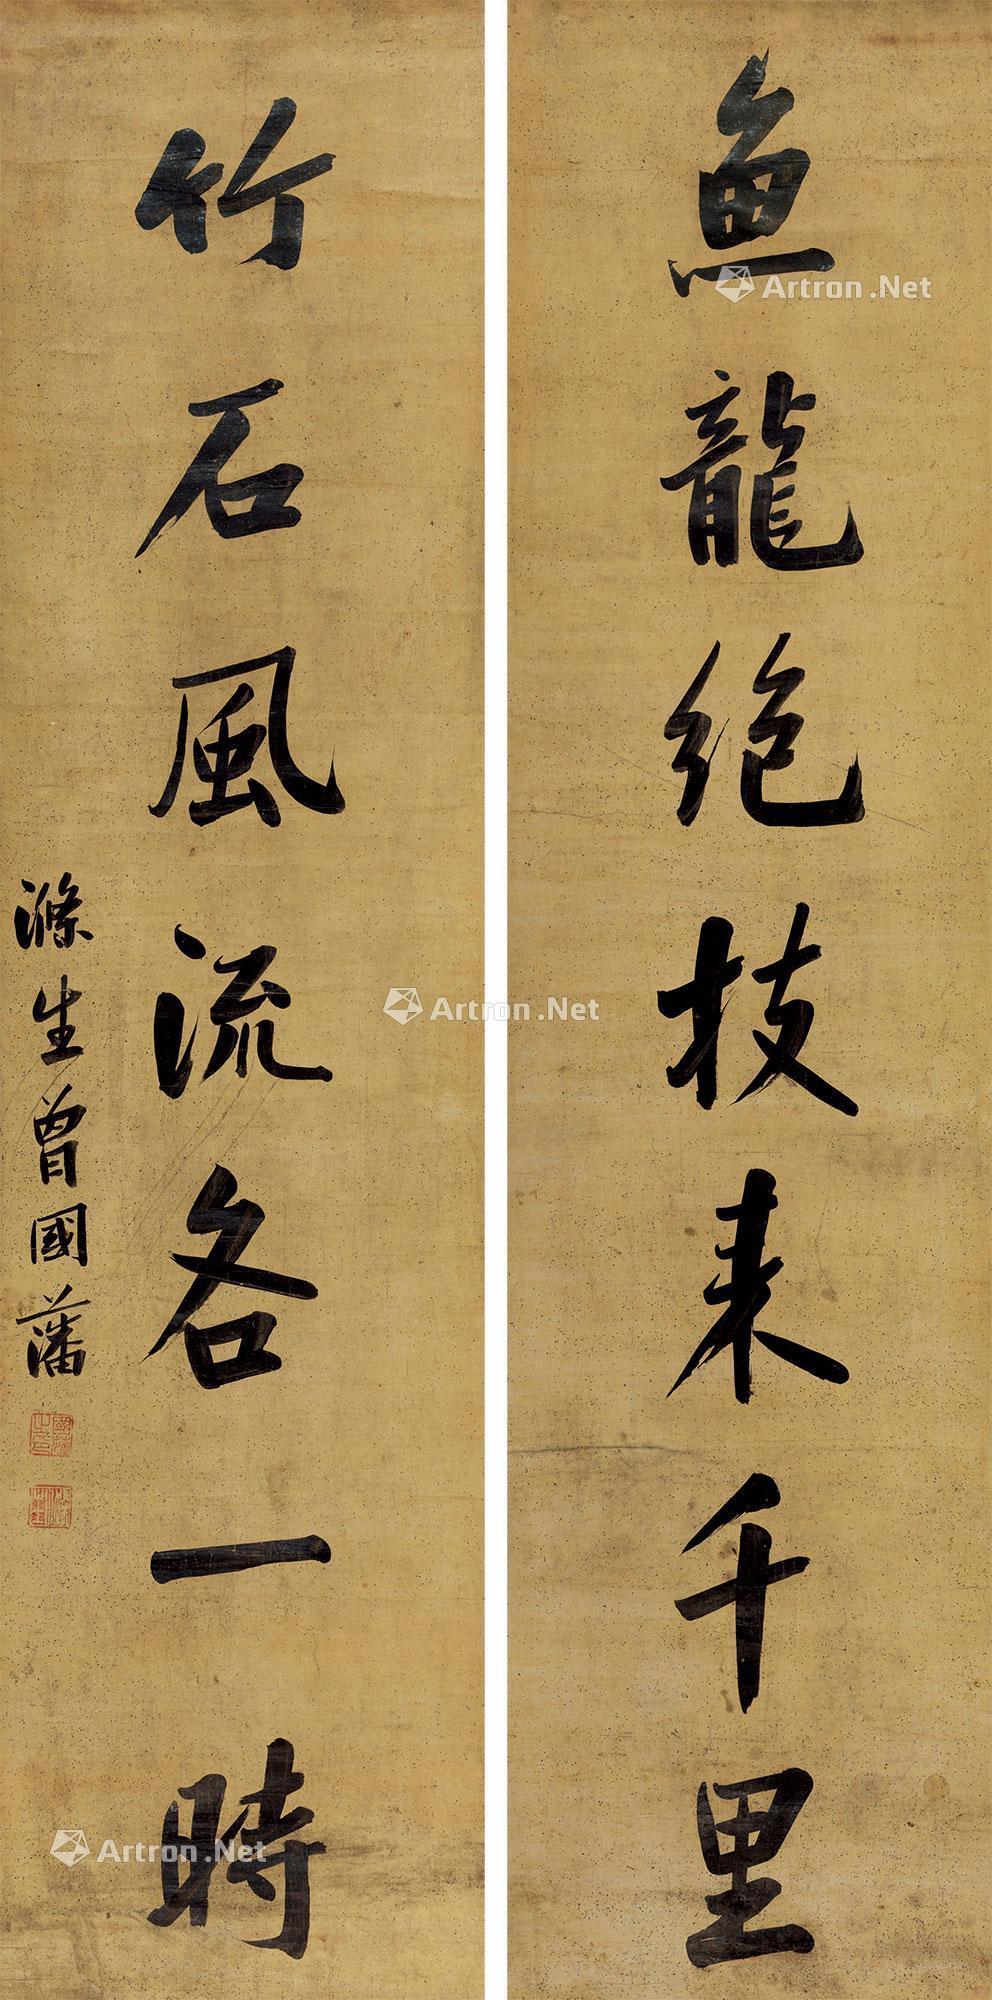 魚龍絕技来千里
竹石風流各一時
滌生曾國藩
Artron.Net
Artron.Net
Artron.Net